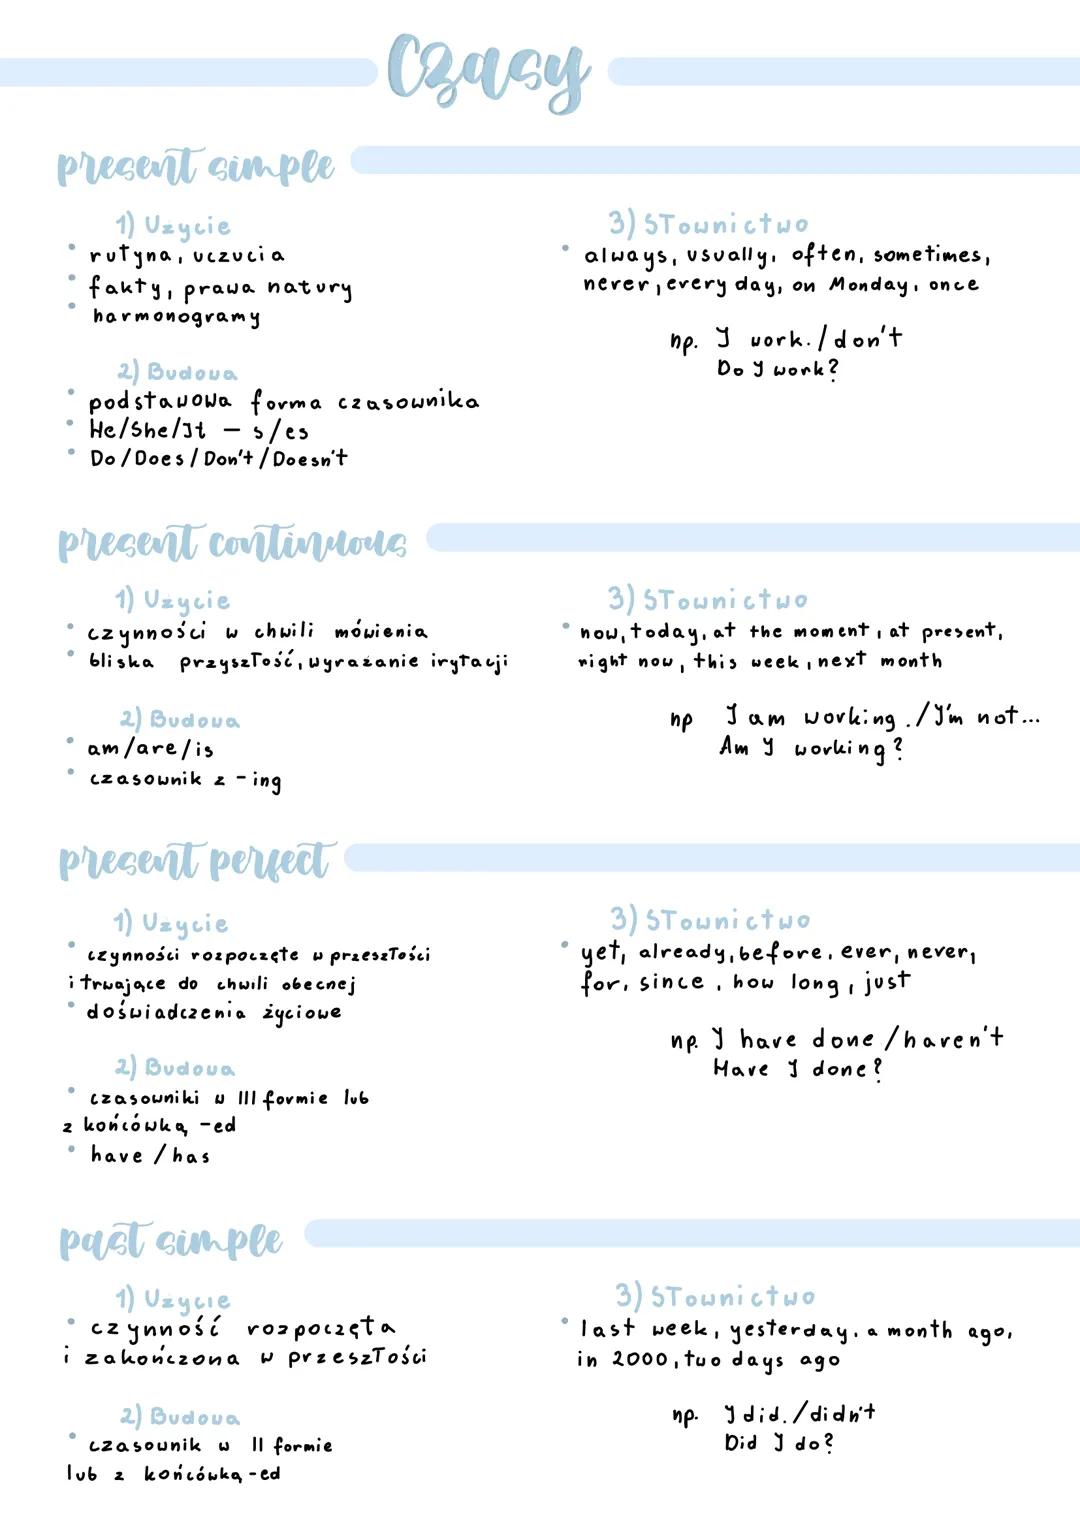 Czasy
present simple
1) Użycie
rutyna, uczucia
fakty, prawa natury
harmonogramy
2) Budowa
podstawowa forma czasownika
He/She/It – s/es
Do/Does/Don't/Doesn't
3) Słownictwo
always, usually, often, sometimes,
never, every day, on Monday, once
np. I work./don't
Do I work?
present continuous
1) Użycie
czynności w chwili mówienia
bliska przyszłość, wyrażanie irytacji
2) Budowa
am/are/is
czasownik z -ing
3) Słownictwo
now, today, at the moment, at present,
right now, this week, next month
np I am working./I'm not...
Am I working?
present perfect
1) Użycie
czynności rozpoczęte w przeszłości
i trwające do chwili obecnej
doświadczenia życiowe
2) Budowa
czasowniki w III formie lub
z końcówką -ed
have/has
3) Słownictwo
yet, already, before, ever, never,
for, since, how long, just
np. I have done/haven't
Have I done?
past simple
1) Użycie
czynność rozpoczęta
i zakończona w przeszłości
2) Budowa
czasownik w II formie
lub z końcówką -ed
3) Słownictwo
last week, yesterday, a month ago,
in 2000, two days ago
np. I did./didn't
Did I do?